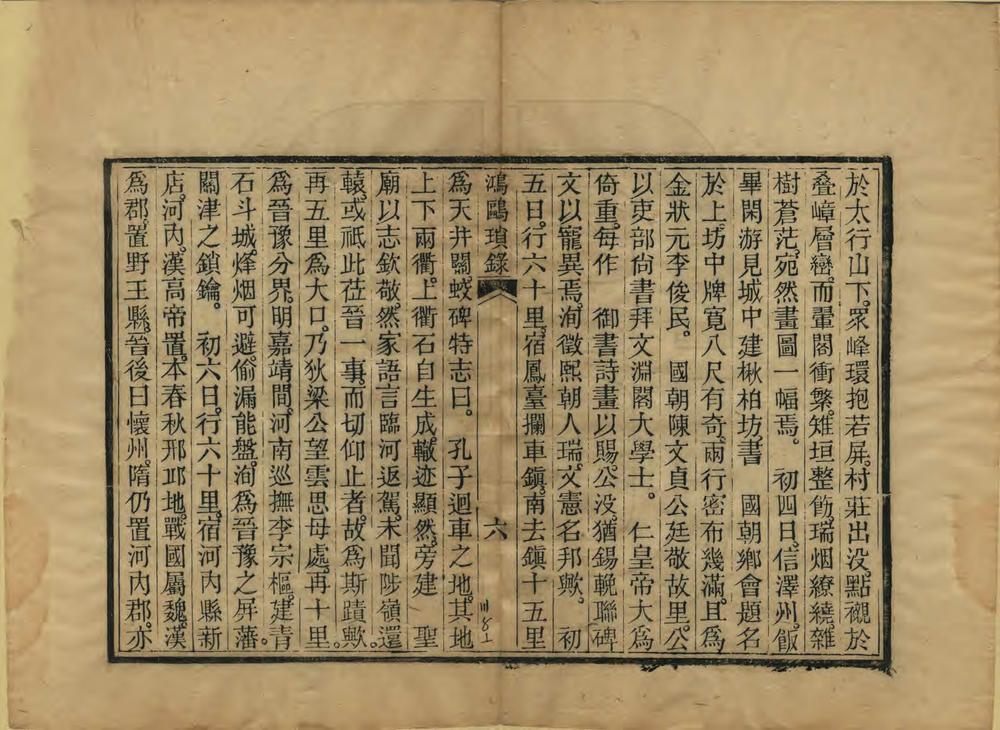 於太行山下。眾峰環抱若屏。村莊出没。點襯於
叠嶂層巒。而翬閣衝繁。雉垣整飭。瑞烟繚繞雜
樹蒼茫。宛然畫圖一幅焉。　初四日。信澤州。飯
畢閑游見城中建楸柏坊。書　國朝鄉會題名
於上。坊中牌寬八尺有奇。兩行密布幾滿。且爲
金狀元李俊民。　國朝陳文貞公廷敬故里。公
以吏部尙書拜文淵閣大學士。　仁皇帝大爲
倚重。每作　御書詩畫以賜。公没猶錫輓聯碑
文以寵異焉。洵徵熙朝人瑞。文憲名邦歟。　初
五日。行六十里。宿鳳臺攔車鎮。南去鎮十五里
鴻鷗瑣錄
六
爲天井關。蛟碑特志曰。　孔子迴車之地。其地
上下兩衢。上衢石自生成。轍迹顯然。旁建　聖
廟以志欽敬。然家語言臨河返駕。未聞陟嶺還
轅。或祇此莅晉一事。而切仰止者。故爲斯蹟歟。
再五里爲大口。乃狄梁公望雲思母處。再十里。
爲晉豫分界。明嘉靖間。河南巡撫李宗樞。建青
石斗城。烽烟可避。偷漏能盤。洵爲晉豫之屏藩。
關津之鎖鑰。　初六日。行六十里。宿河內縣新
店。河內。漢高帝置。本春秋邢邱地。戰國屬魏。漢
爲郡。置野王縣。晉後曰懷州。隋仍置河內郡。亦